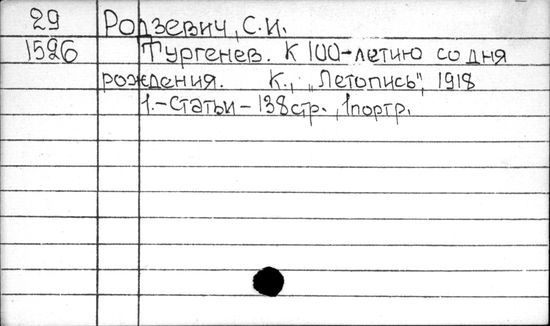 29 Родзевич, С.И.
1526 Тургенев. К 100-летию со дня
рождения. К., „Летопись", 1918
1.-Статьи-138стр., 1портр.